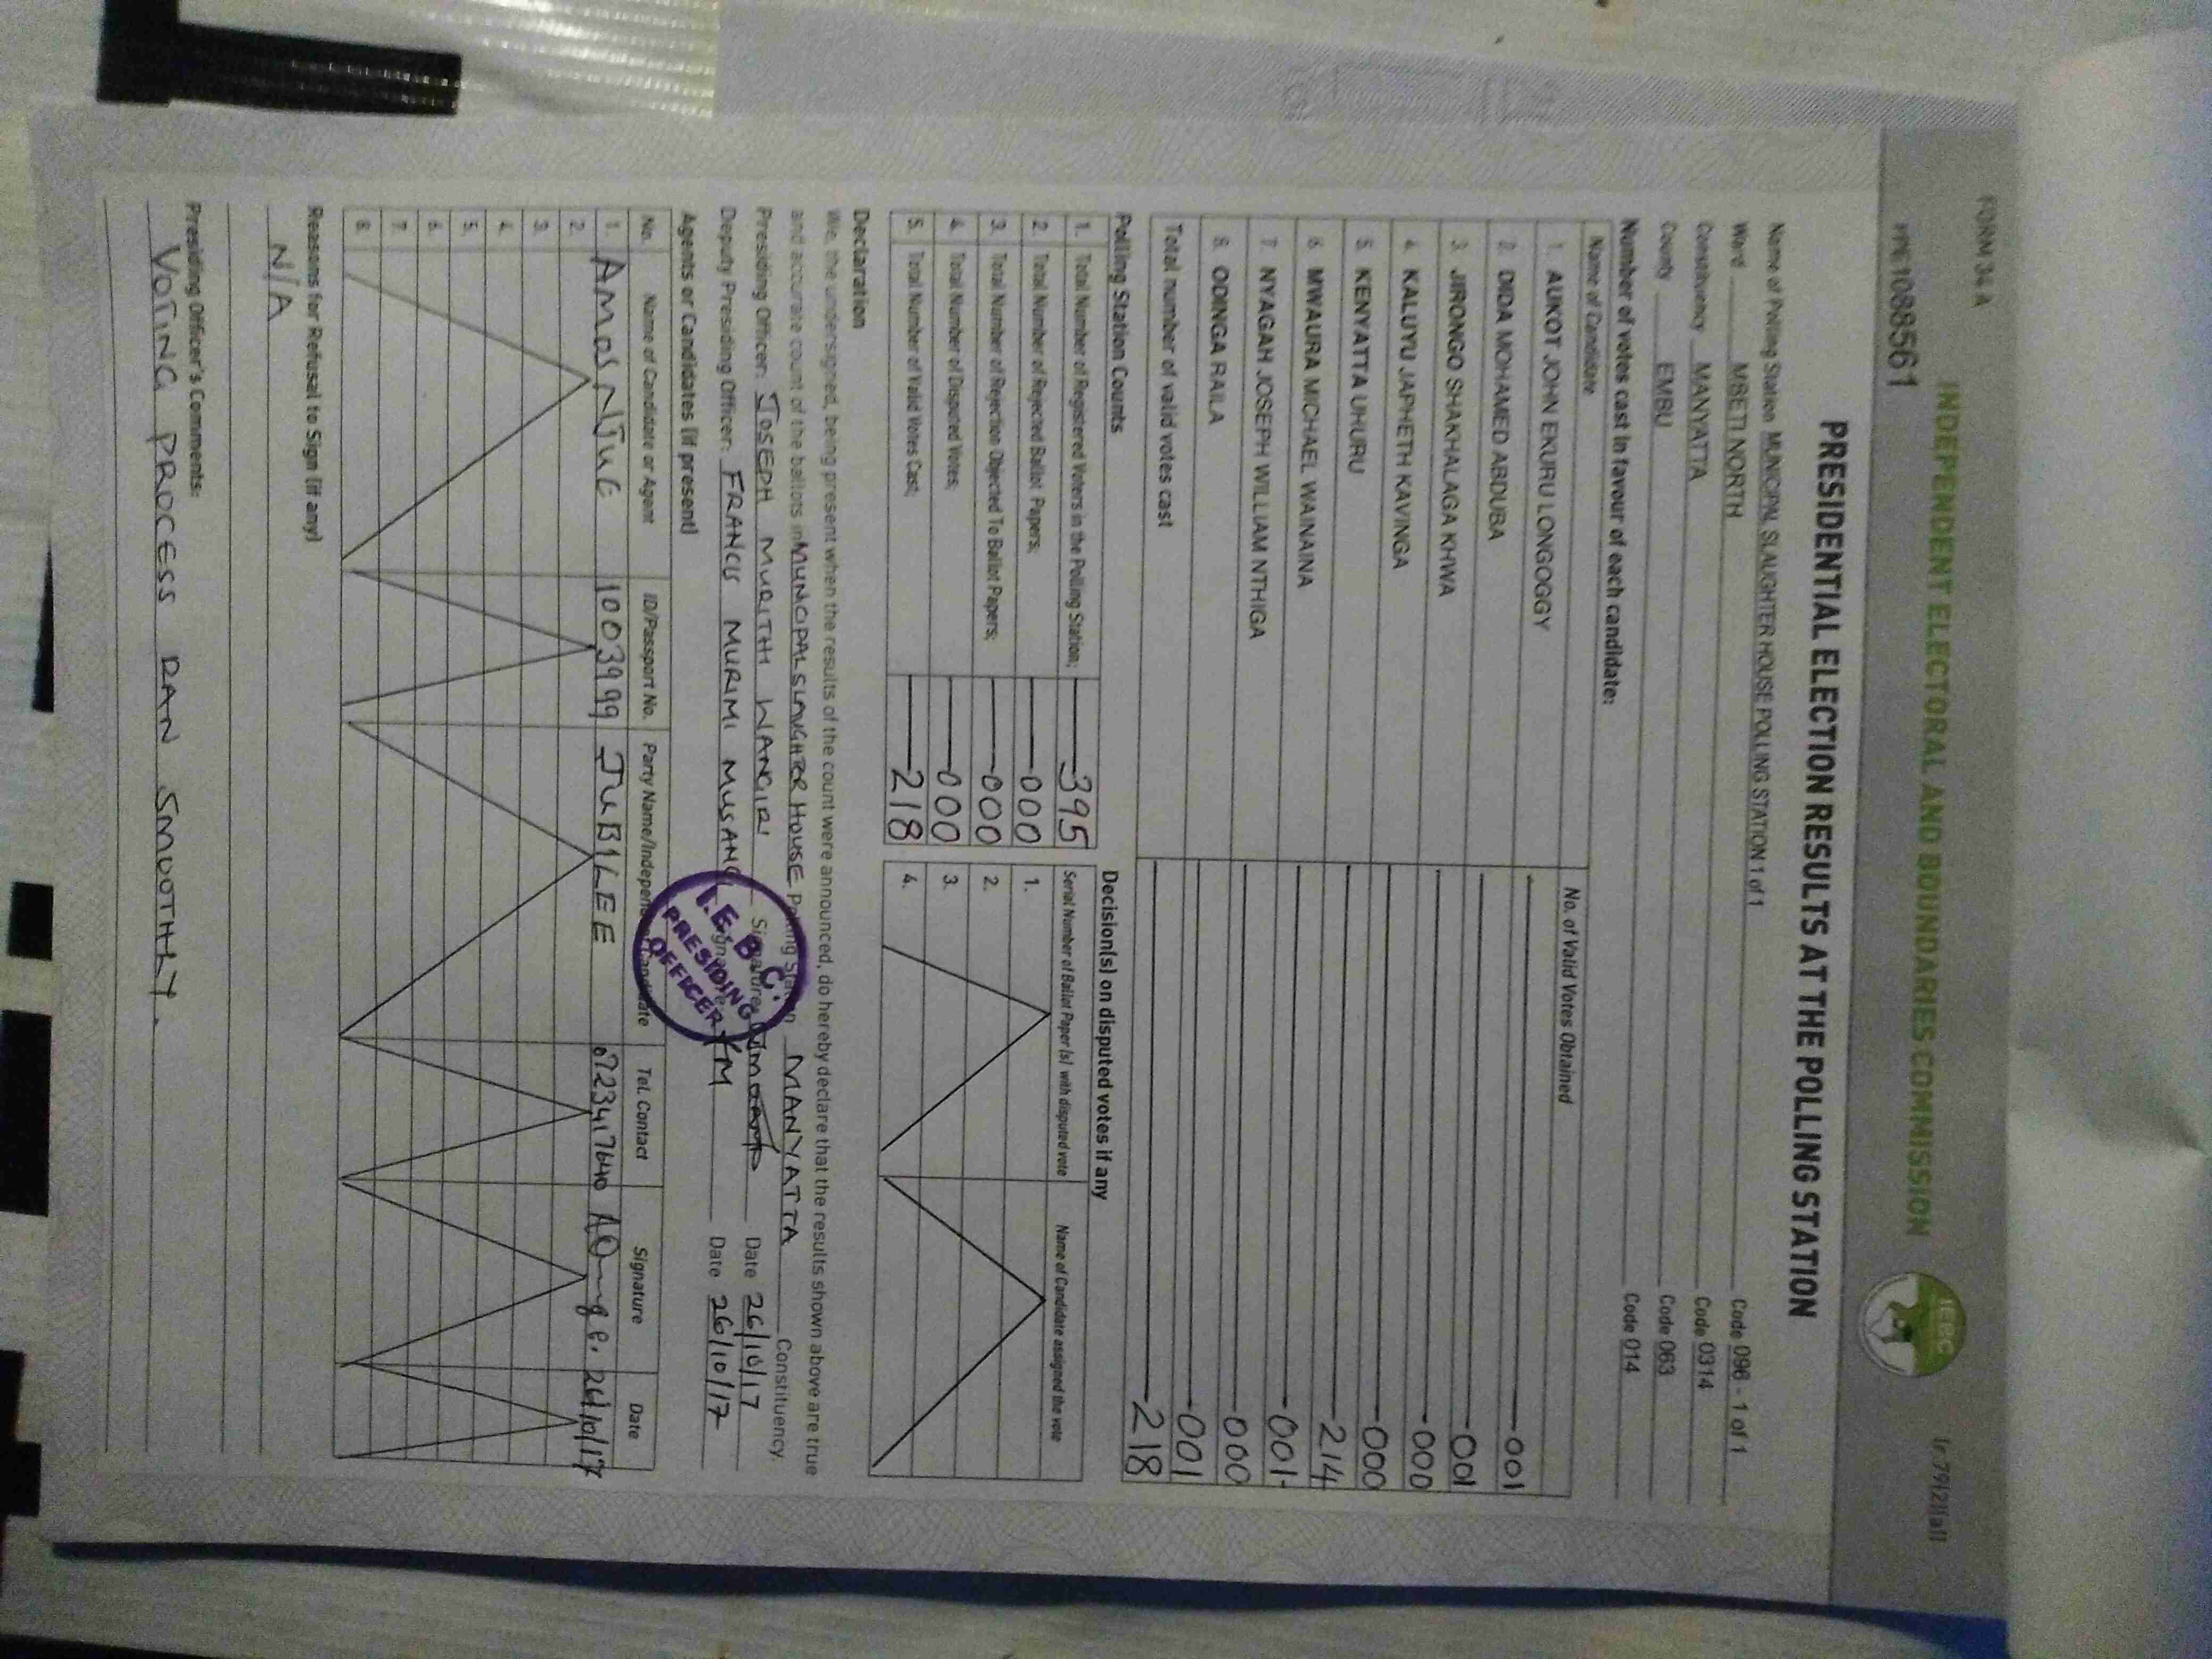 FORM 34 A
INDEPENDENT ELECTORAL AND BOUNDARIES COMMISSION
IEBC
PRESIDENTIAL ELECTION RESULTS AT THE POLLING STATION
Name of Polling Station MUNICIPAL SLAUGHTER HOUSE POLLING STATION 1 of 1 Code 096 - 1 of 1
Ward MBETI NORTH Code 0314
Constituency MANYATTA Code 063
County EMBU Code 014
Number of votes cast in favour of each candidate:
Name of Candidate No. of Valid Votes Obtained
1. AUKOT JOHN EKURU LONGOGGY 001
2. DIDA MOHAMED ABDUBA 001
3. JIRONGO SHAKHALAGA KHWA 000
4. KALUYU JAPHETH KAVINGA 000
5. KENYATTA UHURU 214
6. MWAURA MICHAEL WAINAINA 001
7. NYAGAH JOSEPH WILLIAM NTHIGA 000
8. ODINGA RAILA 001
Total number of valid votes cast 218
Polling Station Counts
1. Total Number of Registered Voters in the Polling Station; 395
2. Total Number of Rejected Ballot Papers; 000
3. Total Number of Rejection Objected To Ballot Papers; 000
4. Total Number of Disputed Votes; 000
5. Total Number of Valid Votes Cast; 218
Decision(s) on disputed votes if any
Serial Number of Ballot Paper (s) with disputed vote Name of Candidate assigned the vote
1.
2.
3.
4.
Declaration
We, the undersigned, being present when the results of the count were announced, do hereby declare that the results shown above are true
and accurate count of the ballots in MUNCIPAL SLAUGHTER HOUSE Polling Station MANYATTA Constituency.
Presiding Officer: JOSEPH MURITHI WANGIRI Signature Date 26/10/17
Deputy Presiding Officer: FRANCIS MURIMI MUSANG Signature FM Date 26/10/17
I.E.B.C. PRESIDING OFFICER
Agents or Candidates (if present)
No. Name of Candidate or Agent ID/Passport No. Party Name/Independent Candidate Tel. Contact Signature Date
1. AMOS NJUE 1003999 JUBILEE 0723417640 26/10/17
2.
3.
4.
5.
6.
7.
8.
Reasons for Refusal to Sign (if any)
N/A
Presiding Officer's Comments:
VOTING PROCESS RAN SMOOTHLY.